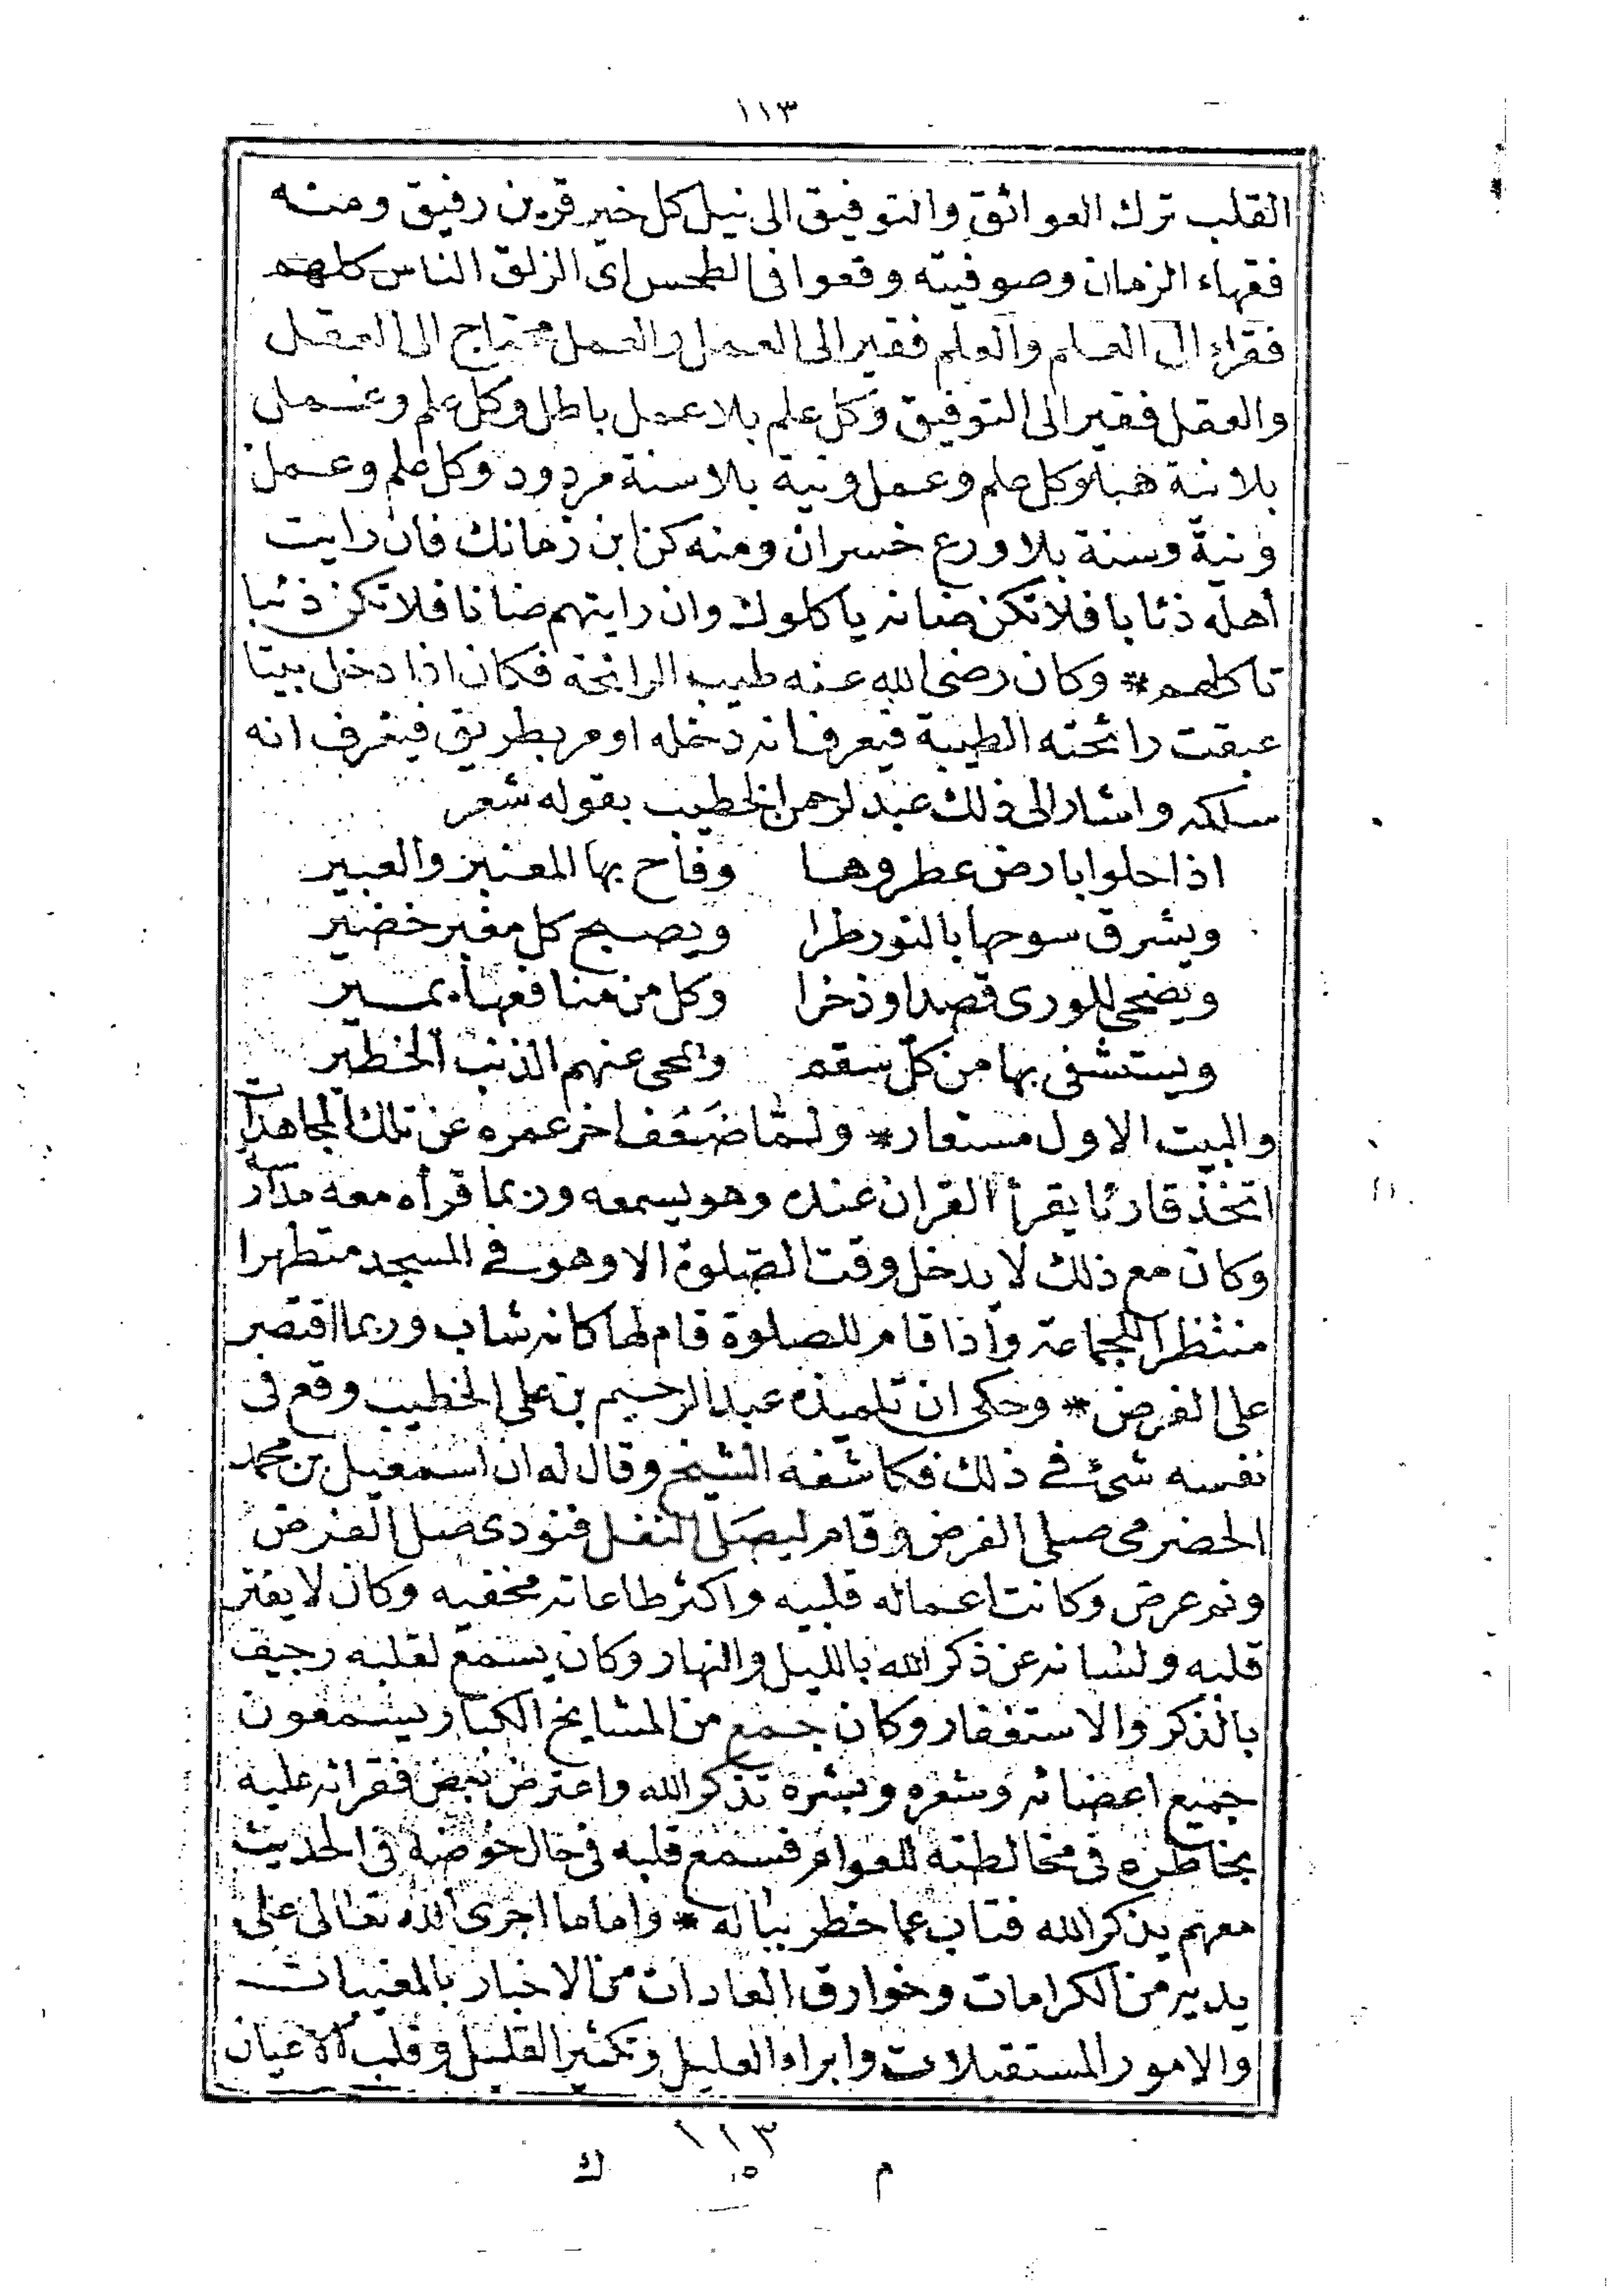 ١١٣
القلب ترك العوائق والتوفيق الى نيل كل خير قرين رفيق ومنه
فقهاء الزمان وصوفيته وقعوا فى الطحس اى الزلق الناس كلهم
فقراء الى العلم والعلم فقير الى العمل والعمل محتاج الى العقل
والعقل فقير الى التوفيق وكل علم بلا عمل باطل وكل علم وعمل
بلا نية هباء وكل علم وعمل ونية بلا سنة مردود وكل علم وعمل
ونية وسنة بلا ورع خسران ومنه كن ابن زمانك فان رايت
أهله ذئابا فلا تكن ضانه ياكلوك وان رايتهم ضانا فلا تكن ذئبا
تاكلهم * وكان رضى الله عنه طيب الرائحة فكان اذا دخل بيتا
عبقت رائحته الطيبة فيعرف انه دخله او مر بطريق فيعرف انه
سلكه واشار الى ذلك عبد الرحمن الخطيب بقوله شعر
اذا حلوا بارض عطروها وفاح بها المعنبر والعبير
ويشرق سوحها بالنور طرا ويصبح كل مغبر خضير
ويضحى للورى قصدا وذخرا وكل من منافعها يمير
ويستشفى بها من كل سقم وامحى عنهم الذنب الخطير
والبيت الاول مستعار * ولما ضعف اخر عمره عن تلك المجاهدات
اتخذ قارئا يقرأ القران عنده وهو يسمعه وربما قرأه معه مدارسة
وكان مع ذلك لا يدخل وقت الصلوة الا وهو فى المسجد متطهرا
منتظرا للجماعة واذا قام للصلوة قام لها كانه شاب وربما اقتصر
على الفرض * وحكى ان تلميذه عبد الرحيم بن على الخطيب وقع فى
نفسه شئ فى ذلك فكاشفه الشيخ وقال له ان اسمعيل بن محمد
الحضرمى صلى الفرض وقام ليصلى النفل فنودى صل الفرض
ونم عرض وكانت اعماله قلبيه واكثر طاعاته مخفيه وكان لا يفتر
قلبه ولسانه عن ذكر الله بالليل والنهار وكان يسمع لقلبه رجيف
بالذكر والاستغفار وكان جمع من المشايخ الكبار يسمعون
جميع اعضائه وشعره وبشره تذكر الله واعترض بعض فقرائه عليه
بخاطره فى مخالطته للعوام فسمع قلبه فى حال خوضه فى الحديث
معهم يذكر الله فتاب عما خطر بباله * واما ما اجرى الله تعالى على
يديه من الكرامات وخوارق العادات من الاخبار بالمغيبات
والامور المستقبلات وابراء العليل وتكثير القليل وقلب الاعيان
١١٣
م ١٥ ك